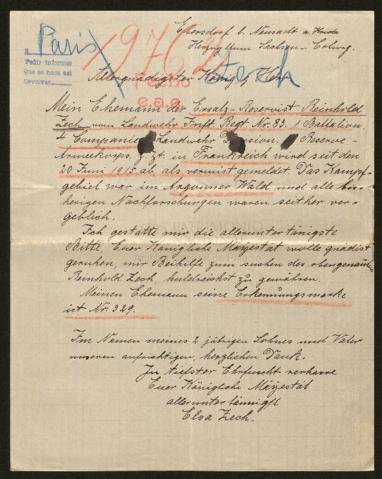 Paris
1976
Zech
Pedir informes
Allergnädigster König u. Herr
Mein Ehemann der Ersatz-Reservist Reinhold
Zech vom Landwehr Inft. Regt. Nr. 83. 1 Battalion
4 Companie Landwehr Reserve-
Armeekorps, z. Zt. in Frankreich wird seit den
20 Juni 1915 ab, als vermist gemeldet. Das Kampf-
gebiet war im Argonner Wald und alle bis-
herigen Nachforschungen waren seither ver-
geblich.
Ich gestatte mir die alleruntertänigste
Bitte, Euer Königliche Mayestät wolle gnädigst
geruhen, mir Beihilfe zum suchen des obengenannten
Reinhold Zech, huldreichst zu gewähren.
Meinen Ehemann seine Erkennungsmarke
ist Nr. 329.
Im Namen meines 2 jährigen Sohnes und Vater
unseren aufrichtigen, herzlichen Dank.
In tiefster Ehrfurcht verharre
Euer Königliche Mayestät
alleruntertänigst
Elsa Zech.